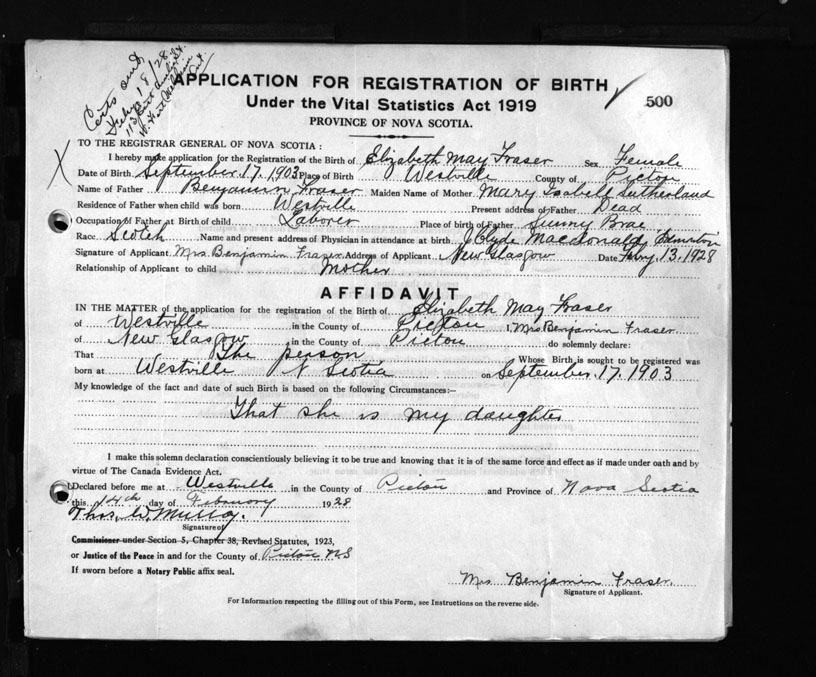 Certs sent
Feby 18/28
APPLICATION FOR REGISTRATION OF BIRTH
500
Under the Vital Statistics Act 1919
PROVINCE OF NOVA SCOTIA.
TO THE REGISTRAR GENERAL OF NOVA SCOTIA:
I hereby make application for the Registration of the Birth of Elizabeth May Fraser Sex Female
Date of Birth September 17, 1903 Place of Birth Westville County of Pictou
Name of Father Benjamin Fraser Maiden Name of Mother Mary Isabell Sutherland
Residence of Father when child was born Westville Present address of Father Dead
Occupation of Father at Birth of child Laborer Place of birth of Father Sunny Brae
Race Scotch Name and present address of Physician in attendance at birth J Clyde Macdonald
Signature of Applicant Mrs Benjamin Fraser Address of Applicant New Glasgow Date Feby 13, 1928
Relationship of Applicant to child Mother
AFFIDAVIT
IN THE MATTER of the application for the registration of the Birth of Elizabeth May Fraser
of Westville in the County of Pictou I, Mrs Benjamin Fraser
of New Glasgow in the County of Pictou do solemnly declare:
That The person Whose Birth is sought to be registered was
born at Westville N Scotia on September 17, 1903
My knowledge of the fact and date of such Birth is based on the following Circumstances:—
That she is my daughter
I make this solemn declaration conscientiously believing it to be true and knowing that it is of the same force and effect as if made under oath and by
virtue of The Canada Evidence Act.
Declared before me at Westville in the County of Pictou and Province of Nova Scotia
this 14th day of February 1928
Thos. W. Murray.
Signature of
Commissioner under Section 5, Chapter 38, Revised Statutes, 1923,
or Justice of the Peace in and for the County of Pictou N.S
If sworn before a Notary Public affix seal.
Mrs Benjamin Fraser
Signature of Applicant.
For Information respecting the filling out of this Form, see Instructions on the reverse side.